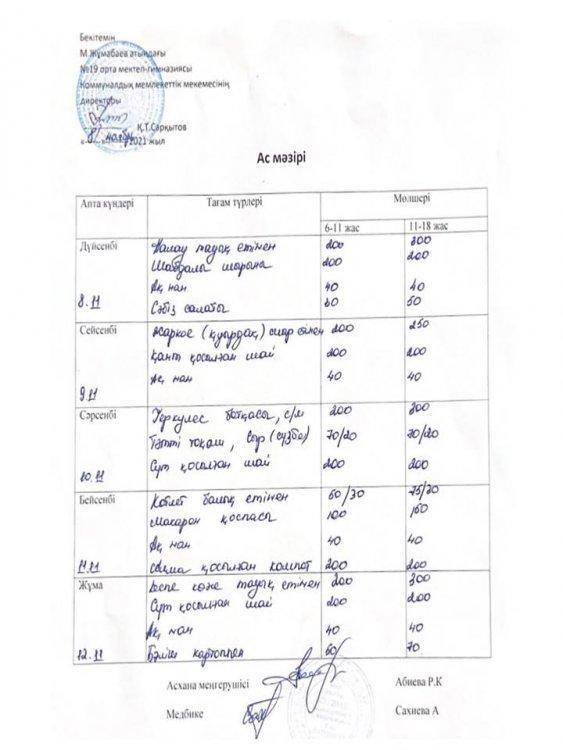 Бекітемін
М.Жұмабаев атындағы
№19 орта мектеп-гимназиясы
Коммуналдық мемлекеттік мекемесінің
директоры
Қ.Т.Сарқытов
«8» ноябрь 2021 жыл
Ас мәзірі
Апта күндері Тағам түрлері Мөлшері
6-11 жас 11-18 жас
Дүйсенбі Палау тауық етінен 200 300
Шабдалы шырына 200 200
Ақ нан 40 40
8.11 Сәбіз салаты 50
Сейсенбі жаркое (қуырдақ) сиыр етінен 200 250
Қант қосылған шай 200 200
Ақ нан 40 40
9.11
Сәрсенбі Геркулес ботқасы, с/м 200 300
Тәтті тоқаш, Сыр (сузбе) 70/20 70/20
Сүт қосылған шай 200 200
10.11
Бейсенбі Котлет балық етінен 50/30 75/30
Макарон қоспасы 100 150
Ақ нан 40 40
11.11 алма қосылған компот 200 200
Жұма Кеспе көже тауық етінен 200 300
Сүт қосылған шай 200 200
Ақ нан 40 40
12.11 Бәліш картоппен 60 70
Асхана меңгерушісі Абиева Р.К
Медбике Сахиева А